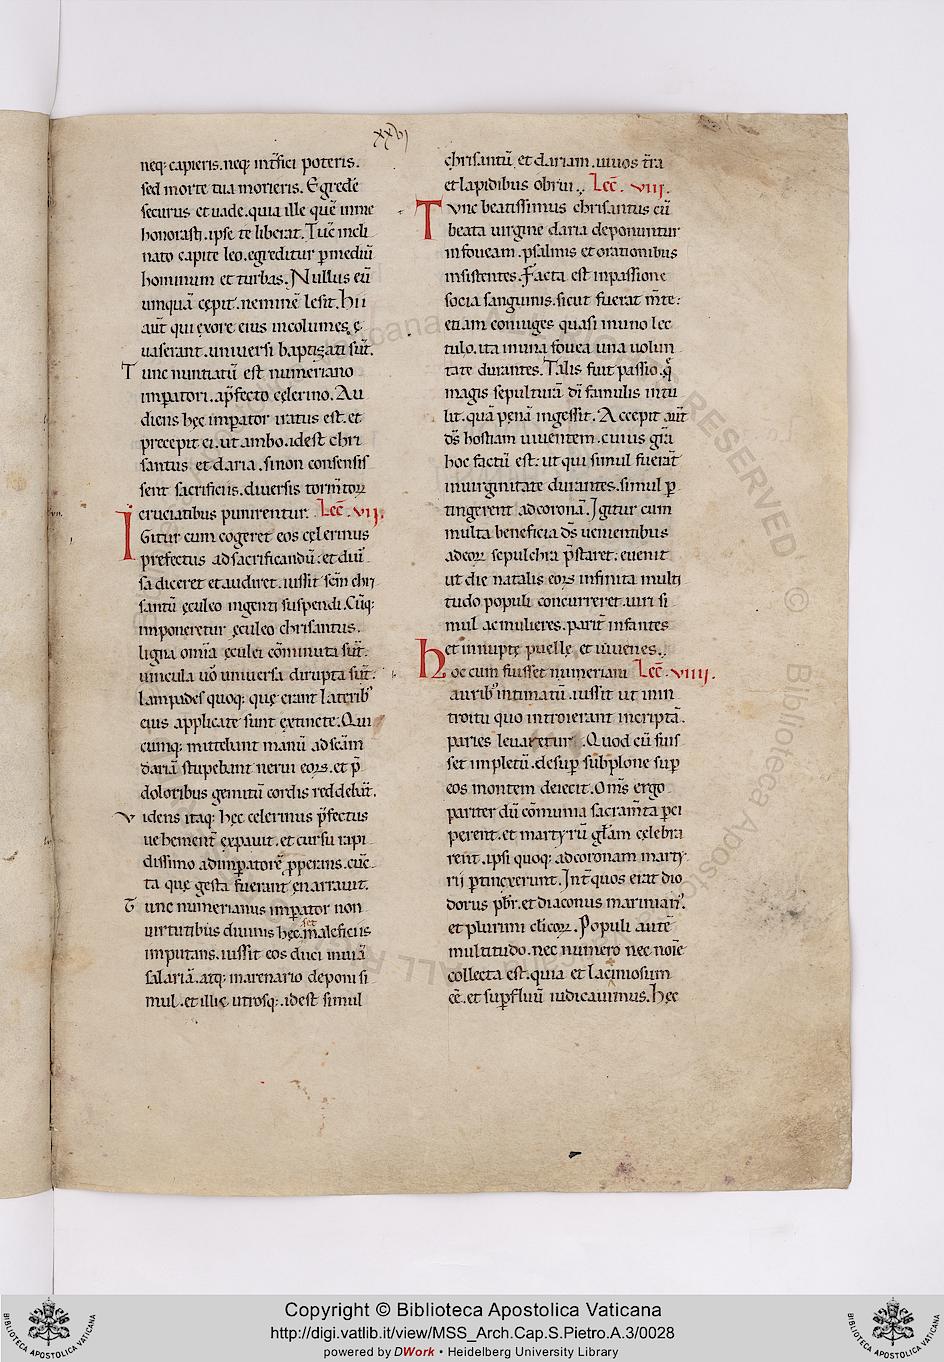 xxvi
neq; capieris. neq; int̄fici poteris.
sed morte tua morieris. Egrede͞
securus et uade. quia ille que͞ in me
honorasti. ipse te liberat. Tuc͞ incli
nato capite leo. egreditur p̱ mediu͞
hominum et turbas. Nullus eu͞
umqua͞ cępit. nemine͞ lesit. hii
aut͞ qui ex ore eius incolumes ę
uaserant. uniuersi baptizati sut͞.
Tunc nuntiatu͞ est numeriano
imp̱atori. ap̄fecto cęlerino. Au
diens hęc imp̱ator iratus est. et
precepit ei. ut ambo. idest chri
santus et daria. si non consensis
sent sacrificiis. diuersis torm͞toꝝ
cruciatibus punirentur. Lec͞. vii.
IGitur cum cogeret eos cęlerinus
prefectus ad sacrificandu͞. et dui͞
sa diceret et audiret. iussit sc͞m chri
santu͞ eculeo ingenti suspendi. Cu͞q;
imponeretur ęculeo chrisantus.
ligna om͞ia ęculei co͞minuta sut͞.
uincula uo͞ uniuersa dirupta sut͞.
Lampades quoq; quę erant laterib;
eius applicate sunt extincte. Qui
cumq; mittebant manu͞ ad sc͞am
daria͞ stupebant nerui eoꝝ. et p̄
doloribus gemitu͞ cordis reddebat͞.
Videns itaq; hęc celerinus p̄fectus
uehement͞ expauit. et cursu rapi
dissimo ad imp̱atore͞ p̱perans. cun͞
ta quę gesta fuerant enarrauit.
Tunc numerianus imp̱ator non
uirtutibus diuinis hęc. set maleficiis
imputans. iussit eos duci in uia͞
salaria͞. atq; in arenario deponi si
mul. et illic utrosq;. idest simul
chrisantu͞ et dariam. uiuos t͞ra
et lapidibus obrui. Lec͞. viii.
Tunc beatissimus chrisantus cu͞
beata uirgine daria deponuntur
in foueam. psalmis et orationibus
insistentes. Facta est in passione
socia sanguinis. sicut fuerat m͞te;
etiam coniuges quasi in uno lec
tulo. ita in una fouea una uolun
tate durantes. Talis fuit passio. q̄
magis sepultura͞ di͞ famulis intu
lit. qua͞ pęna͞ ingessit. Accepit aut͞
ds͞ hostiam uiuentem. cuius gr͞a
hoc factu͞ est. ut qui simul fuerat͞
in uirginitate durantes. simul p̱
tingerent ad corona͞. Igitur cum
multa beneficia ds͞ uenientibus
ad eoꝝ sepulchra p̄staret. euenit
ut die natalis eoꝝ infinita multi
tudo populi concurreret. uiri si
mul ac mulieres. parit͞ infantes
et innuptę puellę et iuuenes.
hoc cum fuisset numeriani Lec͞. viiii.
aurib; intimatu͞. iussit ut in in
troitu quo introierant in cripta͞.
paries leuaretur. Quod cu͞ fuis
set impletu͞. desup̱ sublone sup̱
eos montem deiecit. Om͞s ergo
pariter du͞ co͞munia sacram͞ta p̱ci
perent. et martyru͞ gl͞am cęlebra
rent. ipsi quoq; ad coronam marty
rii p̱tinxerunt. Int͞ quos erat dio
dorus pbr͞. et diaconus marinian;.
et plurimi clicoꝝ. Populi aute͞
multitudo. nec numero nec no͞ie
collecta est. quia et laciniosum
ee͞. et sup̱fluu͞ iudicauimus. hęc
Copyright © Biblioteca Apostolica Vaticana
http://digi.vatlib.it/view/MSS_Arch.Cap.S.Pietro.A.3/0028
powered by DWork • Heidelberg University Library